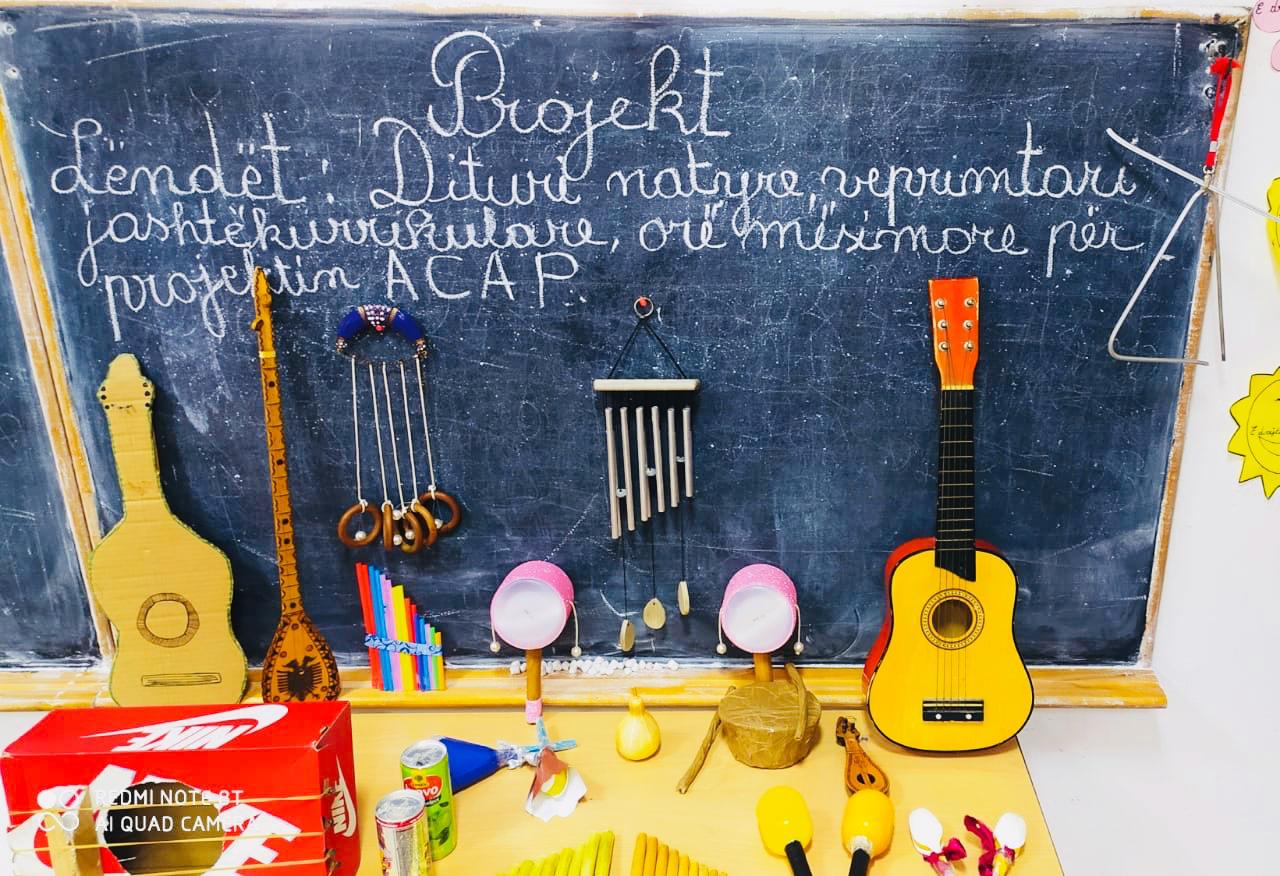 Projekt
Lëndët: Dituri natyre, veprimtari
jashtëkurrikulare, orë mësimore për
projektin ACAP.
NIKE
NIKE
REDMI NOTE 8T
AI QUAD CAMERA